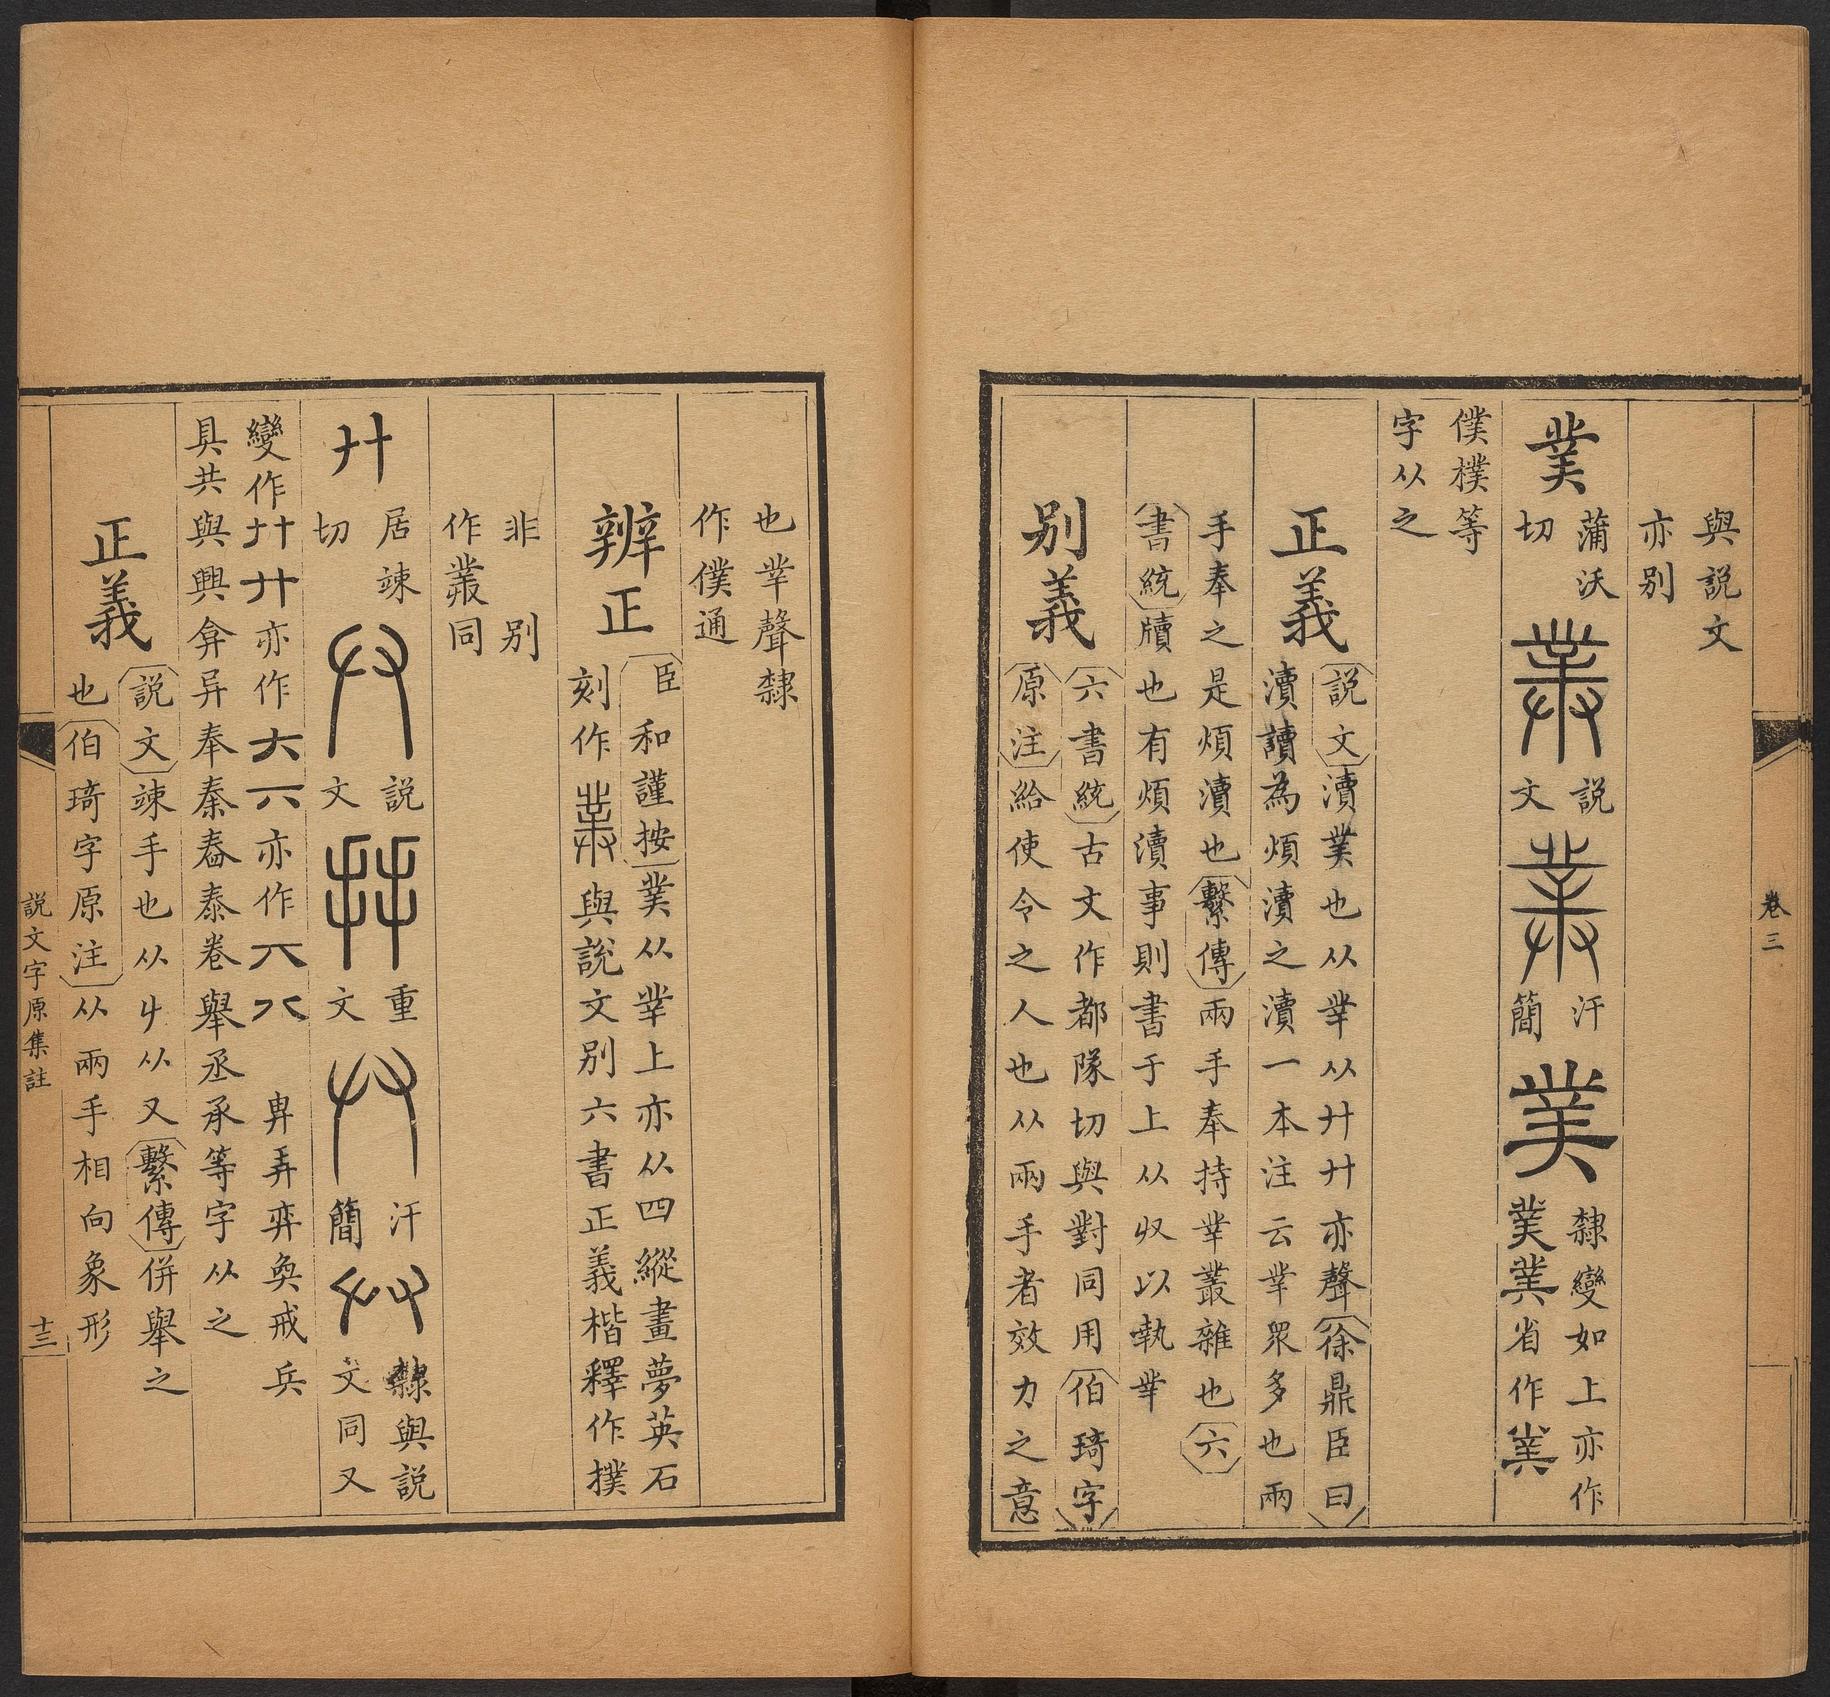 卷三
與說文
亦別
菐
蒲沃
切
說
文
汗
簡
菐
隸變如上亦作
菐菐省作菐
僕樸等
字从之
正義
說文瀆菐也从丵从廾廾亦聲徐鼎臣曰
瀆讀為煩瀆之瀆一本注云丵眾多也兩
手奉之是煩瀆也繫傳兩手奉持丵叢雜也六
書統牘也有煩瀆事則書于上从収以執丵
別義
六書統古文作都隊切與對同用伯琦字
原注給使令之人也从兩手者效力之意
也丵聲隸
作僕通
辨正
臣和謹按菐从丵上亦从四縱畫夢英石
刻作與說文別六書正義楷釋作撲
非別
作叢同
廾
居竦
切
說
文
重
文
汗
簡
隸與說
文同又
變作廾廾亦作大六亦作 弄弈奐戒兵
具共與興弇异奉秦舂泰卷舉丞承等字从之
正義
說文竦手也从又繫傳併舉之
也伯琦字原注从兩手相向象形
說文字原集註
十三